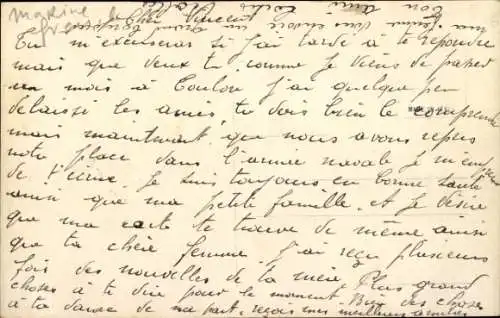 Mon cher Vincent
Tu m'excuseras si j'ai tardé à te répondre
mais que veux tu comme je viens de passer
un mois à Toulon j'ai quelque peu
delaissé les amis, tu dois bien le comprendre
mais maintenant que nous avons repris
notre place dans l'armée navale je m'empresse
de t'écrire. Je suis toujours en bonne santé
ainsi que ma petite famille et je désire
que ma carte te trouve de même ainsi
que ta chère femme. J'ai reçu plusieurs
fois des nouvelles de ta mère. Plus grand
choses à te dire pour le moment. Bien des choses
à ta dame de ma part, reçois mes meilleures amitiés
Ton ami